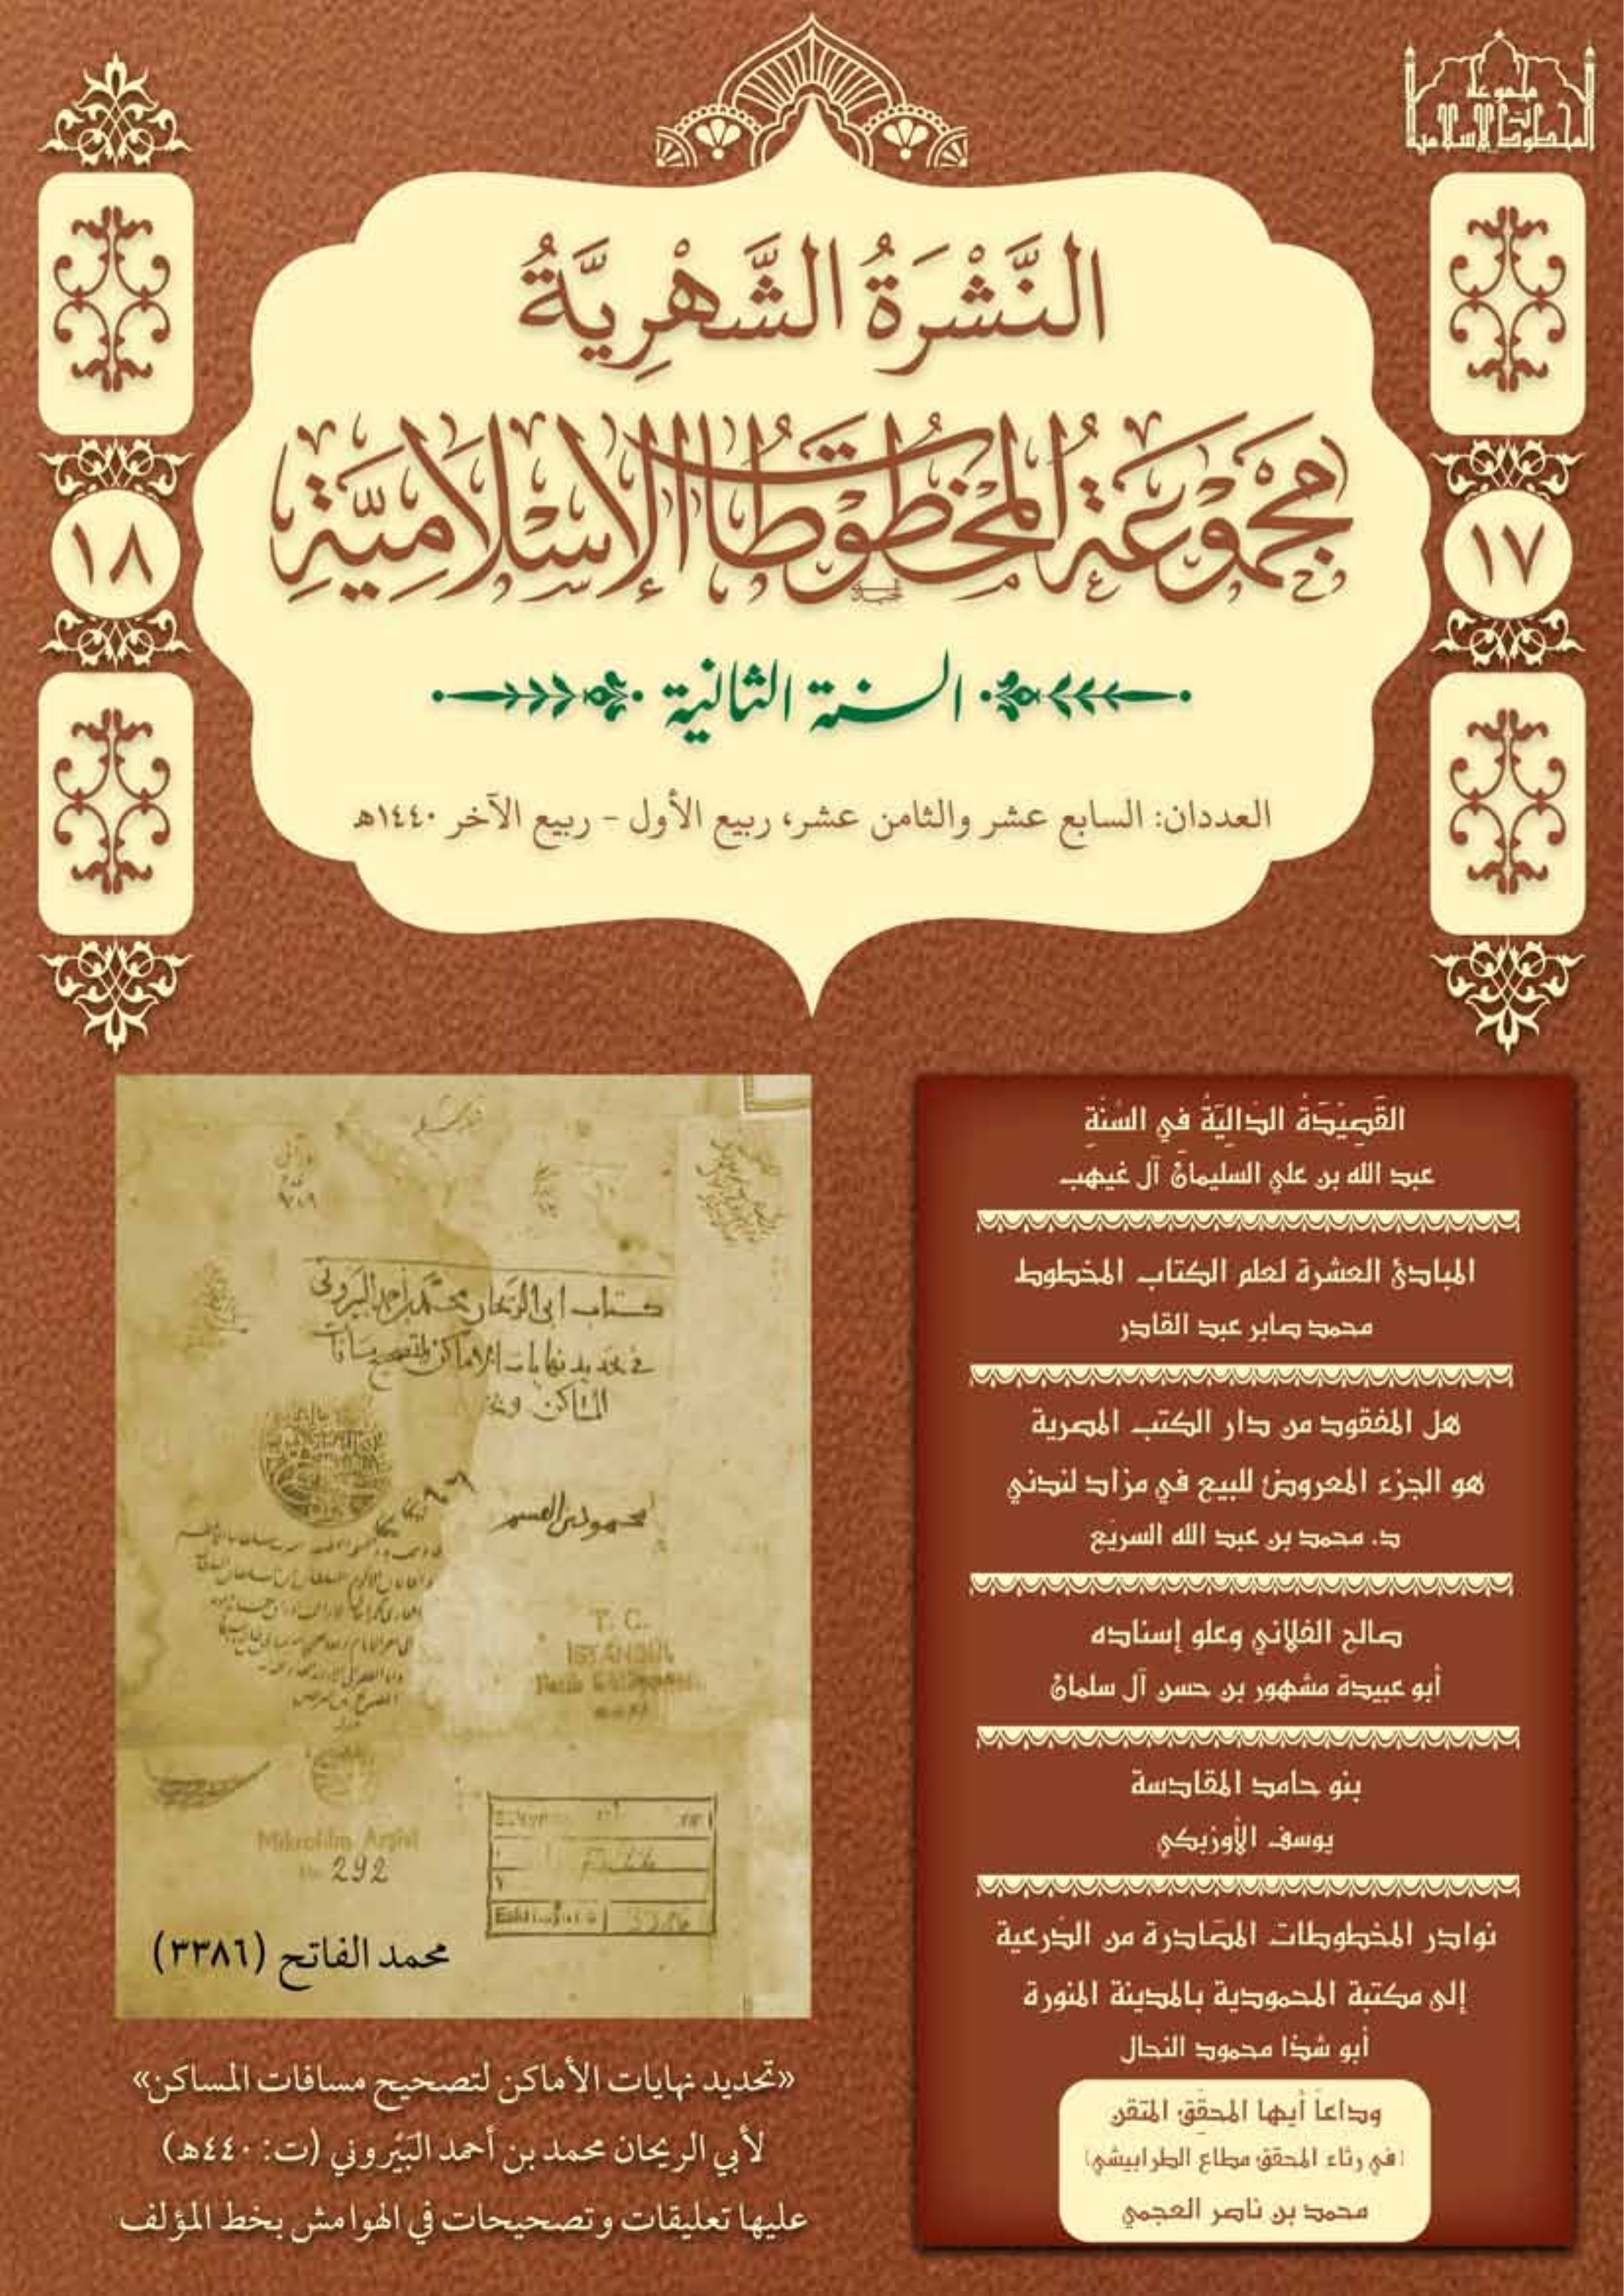 مجموعة
المخطوطات الإسلامية
النَّشْرَةُ الشَّهْرِيَّةُ
مَجْمُوعَةُ المَخْطُوطَاتِ الإِسْلَامِيَّةِ
١٧
١٨
السنة الثانية
العددان: السابع عشر والثامن عشر، ربيع الأول - ربيع الآخر ١٤٤٠هـ
القَصِيْدَةُ الدَّالِيَّةُ في السُّنَّةِ
عبد الله بن علي السليمان آل غيهب
المبادئ العشرة لعلم الكتاب المخطوط
محمد صابر عبد القادر
هل المفقود من دار الكتب المصرية
هو الجزء المعروض للبيع في مزاد لندني
د. محمد بن عبد الله السريّع
صالح الفلاني وعلو إسناده
أبو عبيدة مشهور بن حسن آل سلمان
بنو حامد المقادسة
يوسف الأوزبكي
نوادر المخطوطات المصَادرة من الدّرعية
إلى مكتبة المحمودية بالمدينة المنورة
أبو شذا محمود النحال
وداعاً أيها المحقّق المتقن
(في رثاء المحقق مطاع الطرابيشي)
محمد بن ناصر العجمي
كتاب ابي الريحان محمد بن احمد البيروني
في تحديد نهايات الاماكن لتصحيح مسافات
المساكن
T. C.
ISTANBUL
Mikrofilm Arşivi
No. 292
3386
محمد الفاتح (٣٣٨٦)
«تحديد نهايات الأماكن لتصحيح مسافات المساكن»
لأبي الريحان محمد بن أحمد البَيْروني (ت: ٤٤٠هـ)
عليها تعليقات وتصحيحات في الهوامش بخط المؤلف